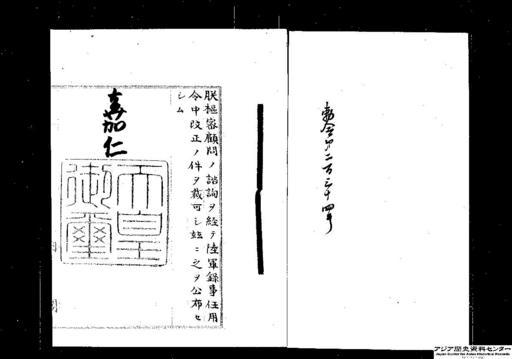 勅令第二百三十四号
朕枢密顧問ノ諮詢ヲ経テ陸軍録事任用
令中改正ノ件ヲ裁可シ茲ニ之ヲ公布セ
シム
嘉仁
天皇
御璽
アジア歴史資料センター
Japan Center for Asian Historical Records